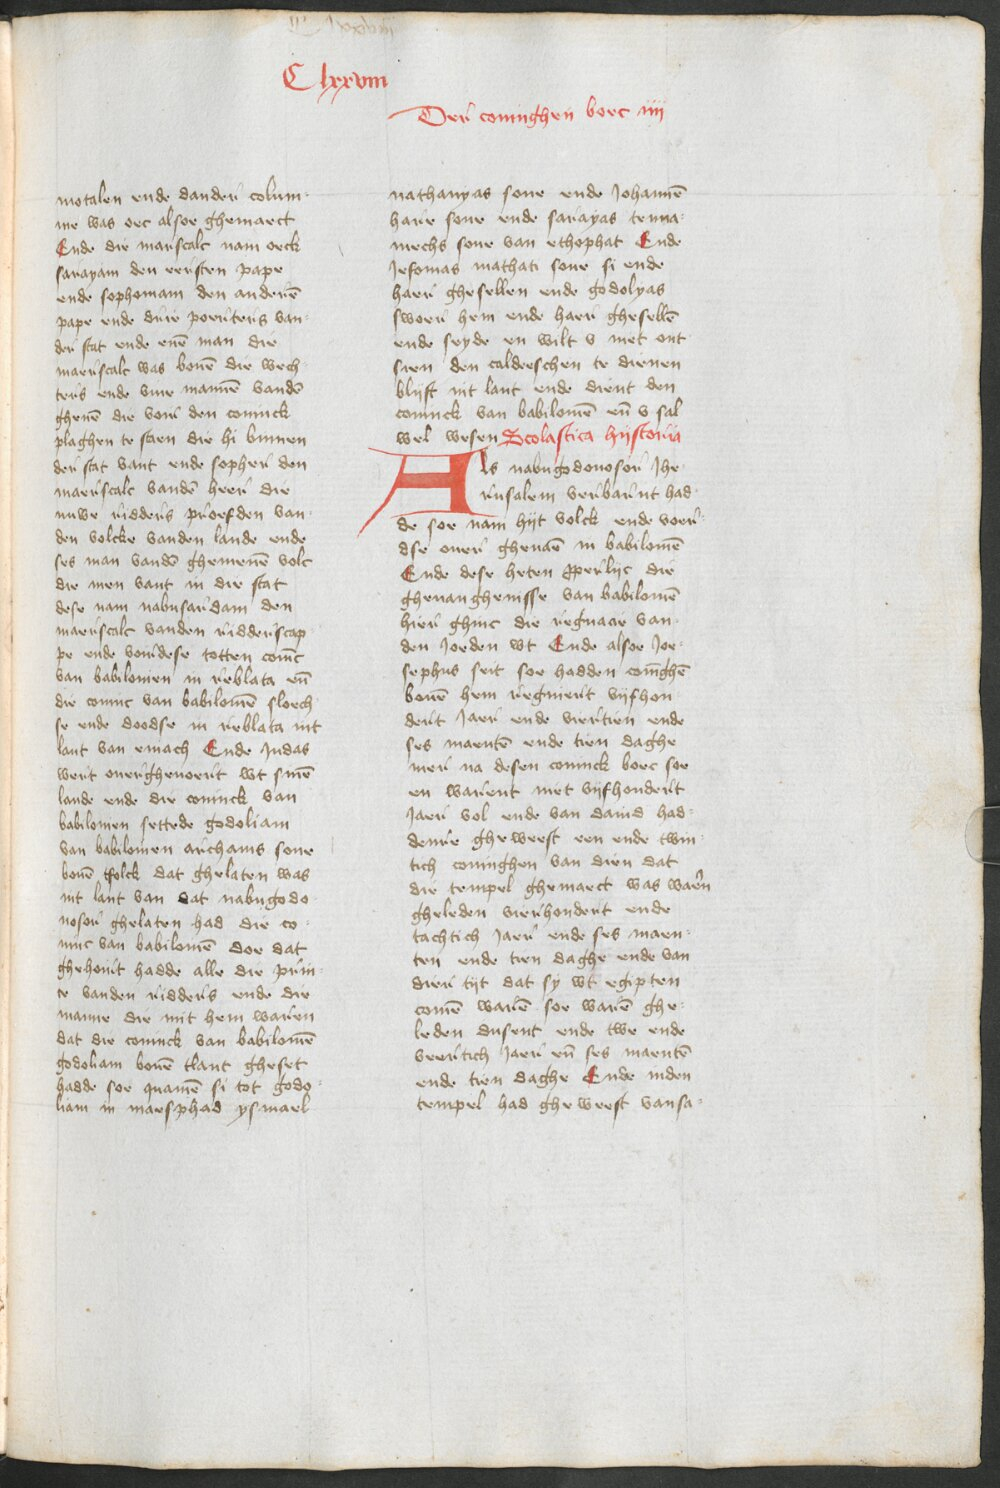 Clxxviii
Der coninghen boec iiii
metalen ende dander colum-
me was oec alsoe ghemaect
Ende die marscalc nam oeck
sarayam den eersten pape
ende sophoniam den anderē
pape ende drie poerters van-
der stat ende enē man die
maerscalc was bouē die vech-
ters ende vyue mannē vandē
ghenē die voer den coninck
plaghen te staen die hi binnen
der stat vant ende sopher den
maerscalc vandē heer die
nuwe ridders proefden van-
den volcke vanden lande ende
ses man vandē ghemeenē volc
die men vant in die stat
dese nam nabusardam den
maerscalc vanden ridderscap-
pe ende voerdese totten coninc
van babilonien in reblata eñ
die coninc van babiloniē sloech-
se ende doodse in reblata int
lant van emach Ende Judas
wert ouerghevoert wt sinē
lande ende die coninck van
babilonien settede godoliam
van babilonien archams sone
bouē tfolck dat ghelaten was
int lant van dat nabugodo-
nosor ghelaten had die co-
ninc van babiloniē doe dat
ghehoirt hadde alle die prin-
ce vanden ridders ende die
manne die mit hem waren
dat die coninck van babiloniē
godoliam bouē tlant gheset
hadde soe quamē si tot godo-
liam in maesphad ysmael
nathanyas sone ende Johannē
hare sone ende sarayas tenna-
mechs sone van ethophat Ende
Jesonias mathati sone si ende
haer ghesellen ende godolyas
swoer hem ende haer ghesellē
ende seyde en wilt v niet ont-
sien den caldeeschen te dienen
blijft int lant ende dient den
coninck van babiloniē eñ v sal
wel wesen Scolastica hijstoria
Als nabugodonosor Jhe-
rusalem verbarnt had-
de soe nam hijt volck ende voer-
dse ouer gheuaē in babiloniē
Ende dese heten pperlijc die
gheuanghenisse van babiloniē
hier ghinc die regnacie van-
den Joeden wt Ende alsoe Joe-
sephus seit soe hadden coninghē
bouē hem regniert vijfhon-
dert Jaer ende viertien ende
ses maentē ende tien daghe
mer na desen coninck boec soe
en warent niet vijfhondert
Jaer vol ende van dauid had-
denre gheweest een ende twin-
tich coninghen van dien dat
die tempel ghemaect was warn
gheleden vierhondert ende
tachtich Jaer ende ses maen-
ten ende tien daghe ende van
dier tijt dat sy wt egipten
comē warē soe warē ghe-
leden dusent ende twe ende
veertich Jaer eñ ses maentē
ende tien daghe Ende inden
tempel had gheweest vansa-